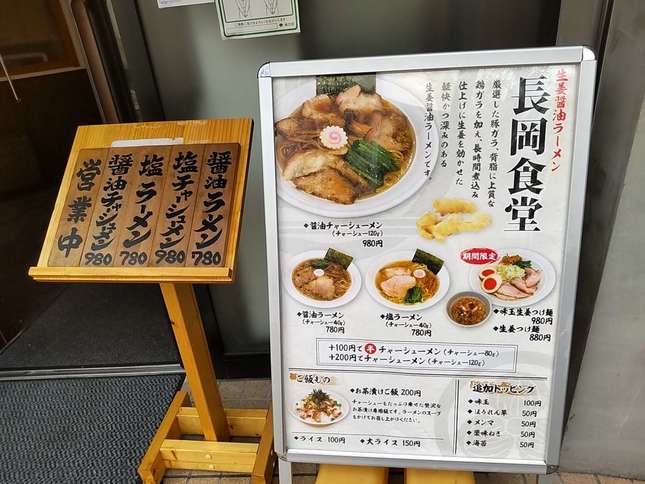 醤油ラーメン 780
塩チャーシュメン 980
塩ラーメン 780
醤油チャーシュメン 980
営業中
生姜醤油ラーメン
長岡食堂
厳選した豚ガラ、背脂に上質な
鶏ガラを加え、長時間煮込み
仕上げに生姜を効かせた
軽快かつ深みのある
生姜醤油ラーメンです。
◆醤油チャーシューメン
(チャーシュー120g)
980円
◆醤油ラーメン
(チャーシュー40g)
780円
◆塩ラーメン
(チャーシュー40g)
780円
期間限定
◆味玉生姜つけ麺
980円
◆生姜つけ麺
880円
+100円で半チャーシューメン(チャーシュー80g)
+200円でチャーシューメン(チャーシュー120g)
ご飯もの
◆お茶漬けご飯 200円
チャーシューもたっぷり乗せた贅沢な
お茶漬け専用飯です。ラーメンのスープを
かけてお召し上がりください。
◆ライス 100円
◆大ライス 150円
追加トッピング
◆味玉 100円
◆ほうれん草 50円
◆メンマ 50円
◆薬味ねぎ 50円
◆海苔 50円